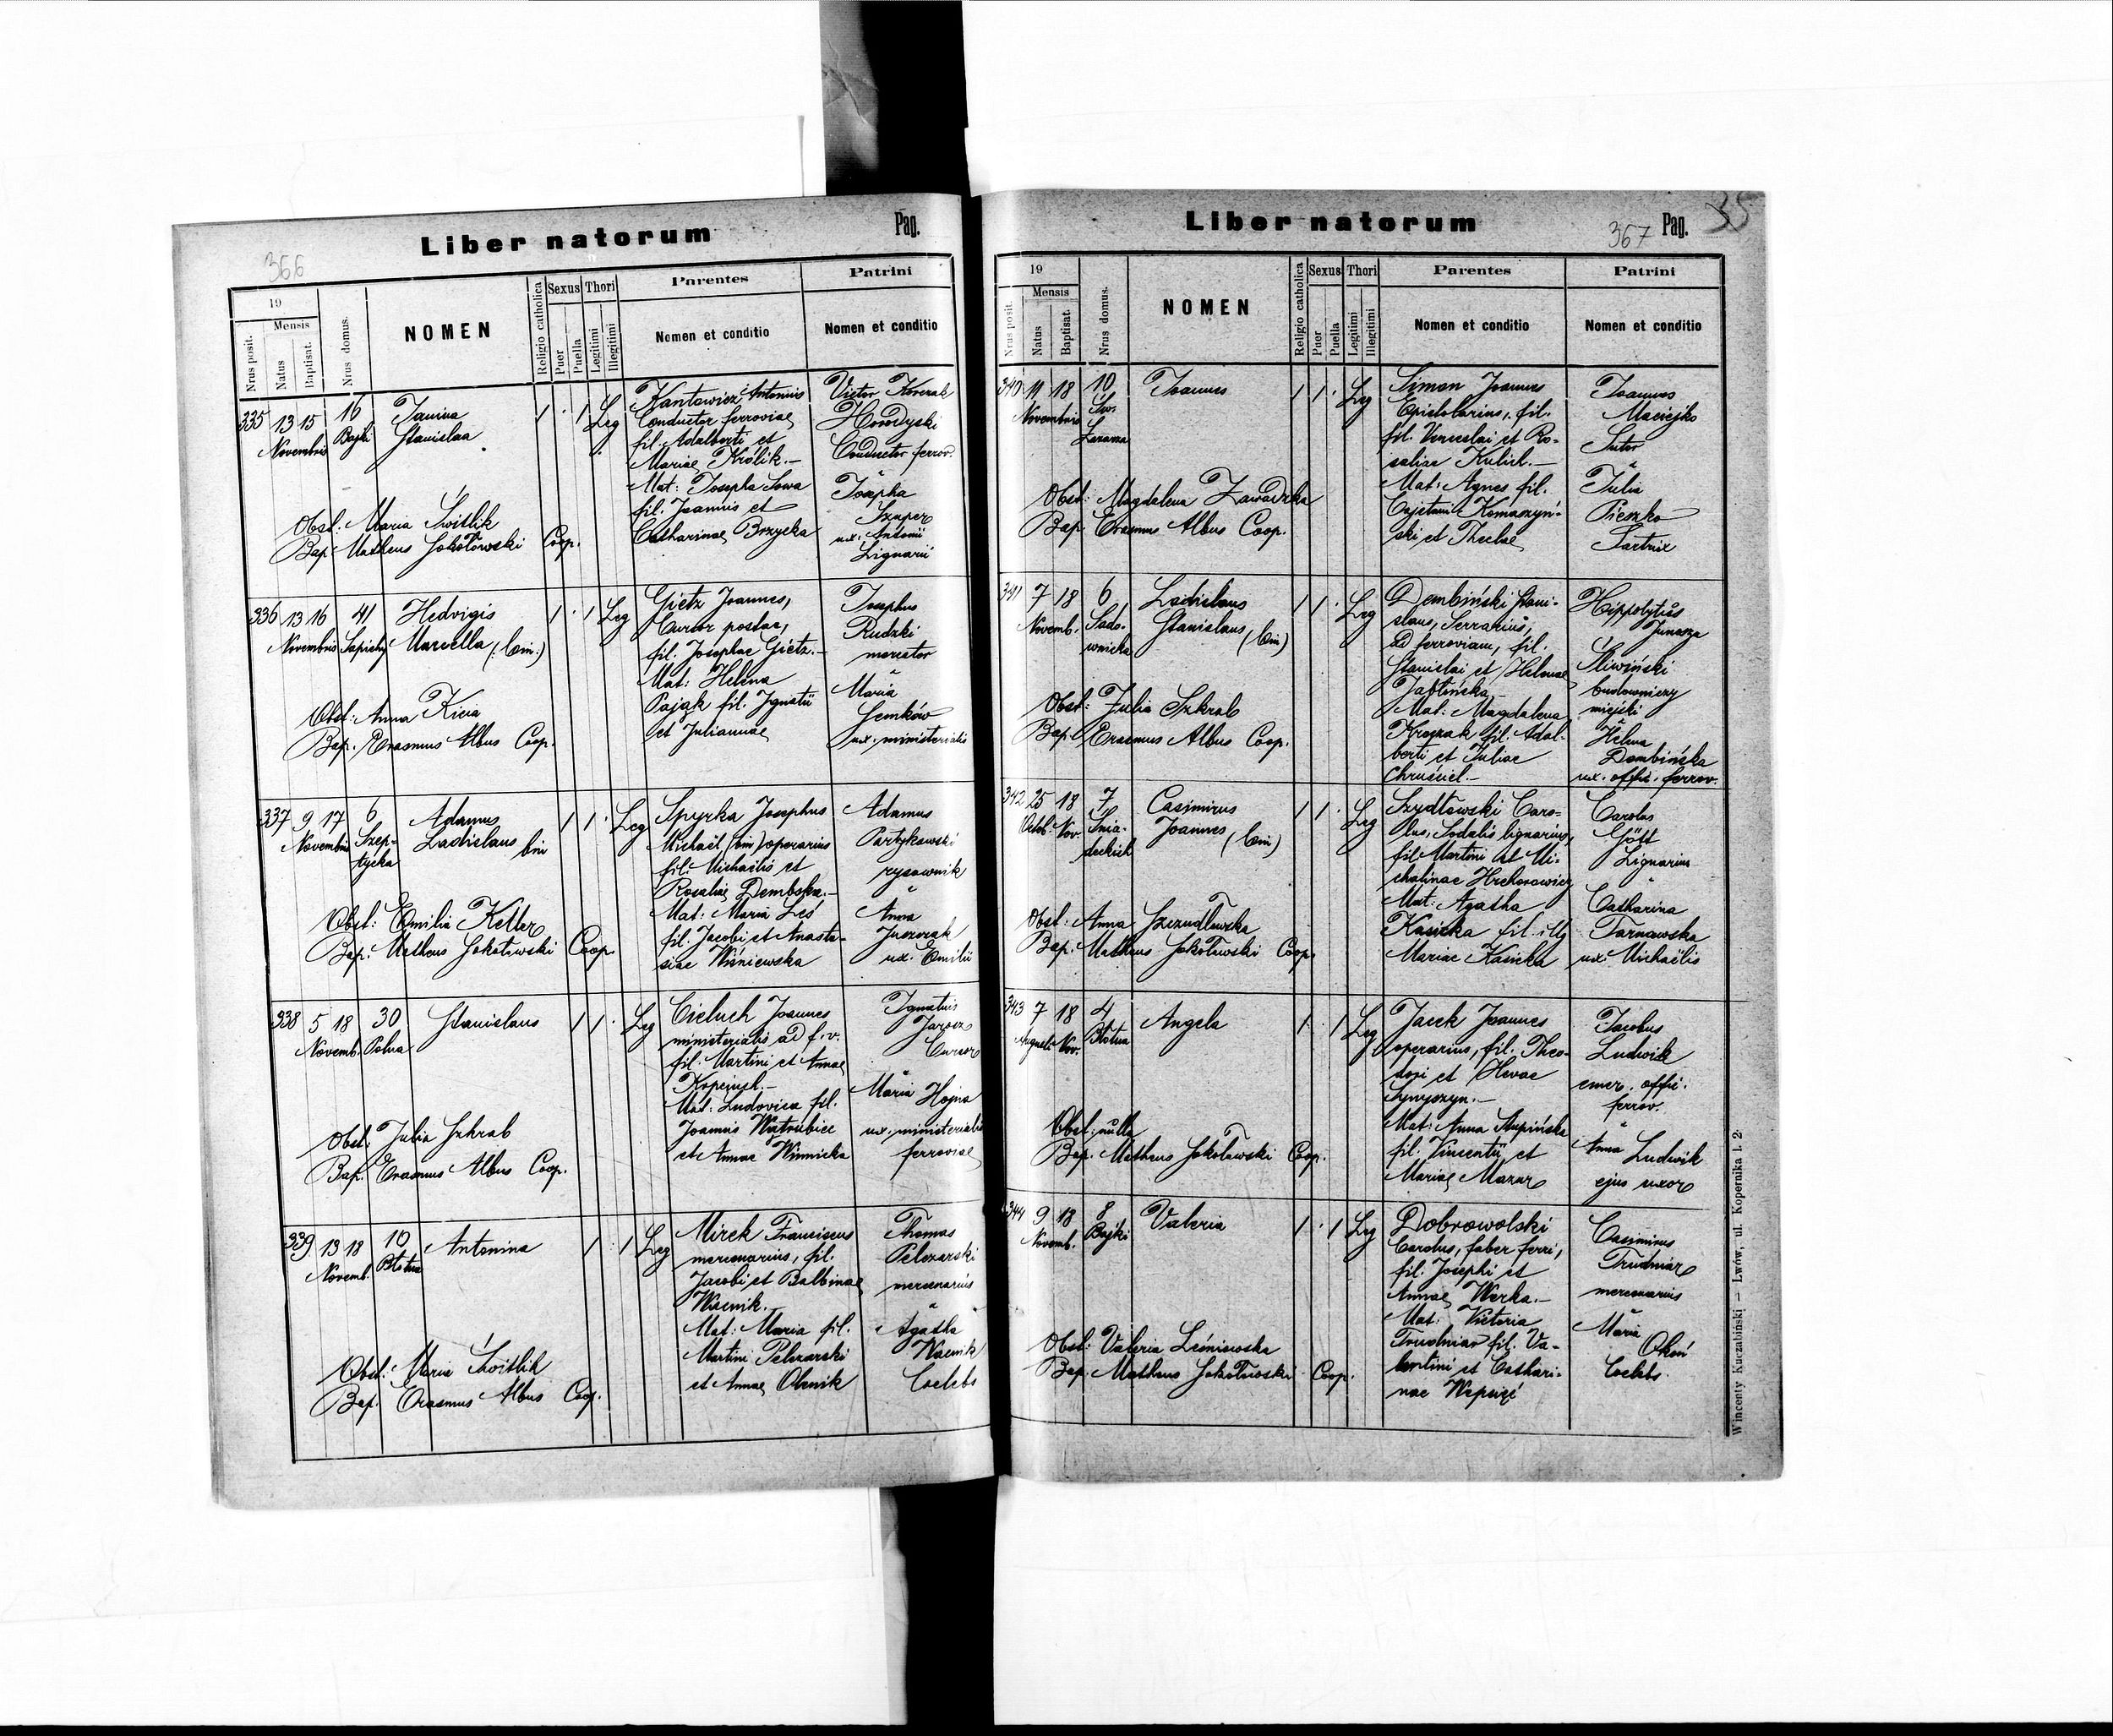 Liber natorum
Pag.
366
19
Mensis
Nrus posit.
Natus
Baptisat.
Nrus domus.
NOMEN
Religio catholica
Sexus
Puer
Puella
Thori
Legitimi
Illegitimi
Parentes
Nomen et conditio
Patrini
Nomen et conditio
335 13 15 16
Novembris Bajki
Janina
Stanislaa
1 · 1 Leg
Kantowicz Antonius
Conductor ferroviae
fil. Adalberti et
Mariae Królik.—
Mat: Josepha Sowa
fil. Joannis et
Catharinae Brzycka
Victor Korczak
Horodyski
Conductor ferrov.
Josepha
Szuper
ux. Antonii
Lignarii
Obst: Maria Świtlik
Bap: Matheus Sokołowski Coop.
336 13 16 41
Novembris Sapiehy
Hedvigis
Marcella (: bin:)
1 · 1 Leg
Gietz Joannes,
Cursor postae,
fil. Josephae Gietz.—
Mat: Helena
Pająk fil. Ignatii
et Juliannae
Josephus
Rudzki
mercator
Maria
Semków
ux. ministerialis
Obst: Anna Kiera
Bap. Erasmus Albus Coop.
337 9 17 6
Novembris Szep-
tycka
Adamus
Ladislaus bin
1 1 · Leg
Spyrka Josephus
Michaël (bin) operarius
fil. Michaëlis et
Rosaliae Dembska.—
Mat: Maria Leś
fil. Jacobi et Anasta-
siae Wiśniewska
Adamus
Partykowski
rysownik
Anna
Juzozak
ux. Emilii
Obst: Emilia Keller
Bap: Matheus Sokołowski Coop.
338 5 18 30
Novemb. Polna
Stanislaus
1 1 · Leg
Cieluch Joannes
ministerialis ad f. v.
fil. Martini et Annae
Kopciuch.—
Mat: Ludovica fil.
Joannis Watrubiec
et Annae Winnicka
Ignatius
Jarosz
Cursor
Maria Hojna
ux. ministerialis
ferroviae
Obst. Julia Szkrab
Bap. Erasmus Albus Coop.
339 13 18 10
Novemb. Błotna
Antonina
1 · 1 Leg
Mirek Franciscus
mercenarius, fil.
Jacobi et Balbinae
Wacnik.
Mat: Maria fil.
Martini Pelczarski
et Annae Olenik
Thomas
Pelczarski
mercenarius
Agatha
Wacnik
Coelebs
Obst: Maria Świtlik
Bap. Erasmus Albus Coop.
Liber natorum
367 Pag. 35
19
Mensis
Nrus posit.
Natus
Baptisat.
Nrus domus.
NOMEN
Religio catholica
Sexus
Puer
Puella
Thori
Legitimi
Illegitimi
Parentes
Nomen et conditio
Patrini
Nomen et conditio
340 11 18 10
Novembris Św.
Łazarza
Joannes
1 1 · Leg
Simon Joannes
Epistolarius, fil.
fil. Venceslai et Ro-
saliae Kulich.—
Mat: Agnes fil.
Cajetani Komaszyń-
ski et Theclae
Joannes
Maciejko
Sutor
Julia
Pieszko
Sartrix
Obst: Magdalena Zawadzka
Bap Erasmus Albus Coop.
341 7 18 6
Novemb. Sado-
wnicka
Ladislaus
Stanislaus (bin)
1 1 · Leg
Dembiński Stani-
slaus, Serrarius,
ad ferroviam, fil.
Stanislai et Helenae
Jabłińska
Mat: Magdalena
fil. Adal-
berti et Juliae
Chruściel.—
Hippolytus
Junosza
Śliwiński
budowniczy
miejski
Helena
Dembińska
ux. offic. ferrov.
Obst: Julia Szkrab
Bap. Erasmus Albus Coop.
342 25 18 7
Octob. Nov. Śnia-
deckich
Casimirus
Joannes (bin)
1 1 · Leg
Szydłowski Caro-
lus, Sodalis lignarius,
fil. Martini et Mi-
chalinae Hrehorowicz
Mat: Agatha
Kasicka fil. illg
Mariae Kasicka
Carolus
Gött
Lignarius
Catharina
Tarnawska
ux. Michaëlis
Obst: Anna Szczudłowska
Bap: Matheus Sokołowski Coop.
343 7 18 4
Augusti Nov. Błotna
Angela
1 · 1 Leg
Jacek Joannes
operarius, fil. Theo-
dori et Hevae
Synyszyn.—
Mat: Anna Stupińska
fil. Vincentii et
Mariae Mazur
Jacobus
Ludwik
emer. offic.
ferrov.
Anna Ludwik
ejus uxor
Obst: nulla
Bap. Matheus Sokołowski Coop.
344 9 18 8
Novemb. Bajki
Valeria
1 · 1 Leg
Dobrowolski
Carolus, faber ferri,
fil. Josephi et
Annae Werka.—
Mat: Victoria
Trudniar fil. Va-
lentini et Cathari-
nae
Casimirus
Trudniar
mercenarius
Maria
Okoń
Coelebs.
Obst: Valeria Leśniewska
Bap. Matheus Sokołowski Coop.
Wincenty Kuczabiński — Lwów, ul. Kopernika l. 2.